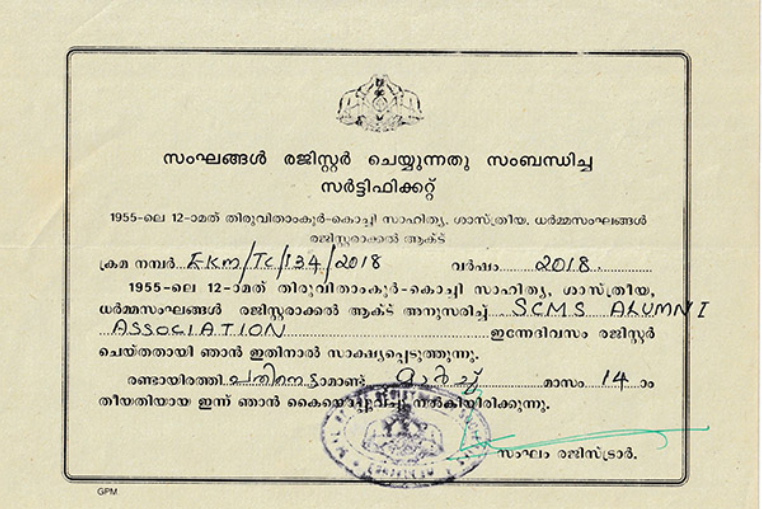 സംഘങ്ങൾ രജിസ്റ്റർ ചെയ്യുന്നതു സംബന്ധിച്ച
സർട്ടിഫിക്കറ്റ്
1955-ലെ 12-ാമത് തിരുവിതാംകൂർ-കൊച്ചി സാഹിത്യ, ശാസ്ത്രീയ, ധർമ്മസംഘങ്ങൾ
രജിസ്റ്ററാക്കൽ ആക്ട്
ക്രമ നമ്പർ EKM/TC/134/2018 വർഷം 2018
1955-ലെ 12-ാമത് തിരുവിതാംകൂർ-കൊച്ചി സാഹിത്യ, ശാസ്ത്രീയ,
ധർമ്മസംഘങ്ങൾ രജിസ്റ്ററാക്കൽ ആക്ട് അനുസരിച്ച് SCMS ALUMNI
ASSOCIATION ഇന്നേദിവസം രജിസ്റ്റർ
ചെയ്തതായി ഞാൻ ഇതിനാൽ സാക്ഷ്യപ്പെടുത്തുന്നു.
രണ്ടായിരത്തി പതിനെട്ടാമാണ്ട് മാർച്ച് മാസം 14 ാം
തീയതിയായ ഇന്ന് ഞാൻ കൈയൊപ്പുവച്ചു നൽകിയിരിക്കുന്നു.
സംഘം രജിസ്ട്രാർ.
GPM